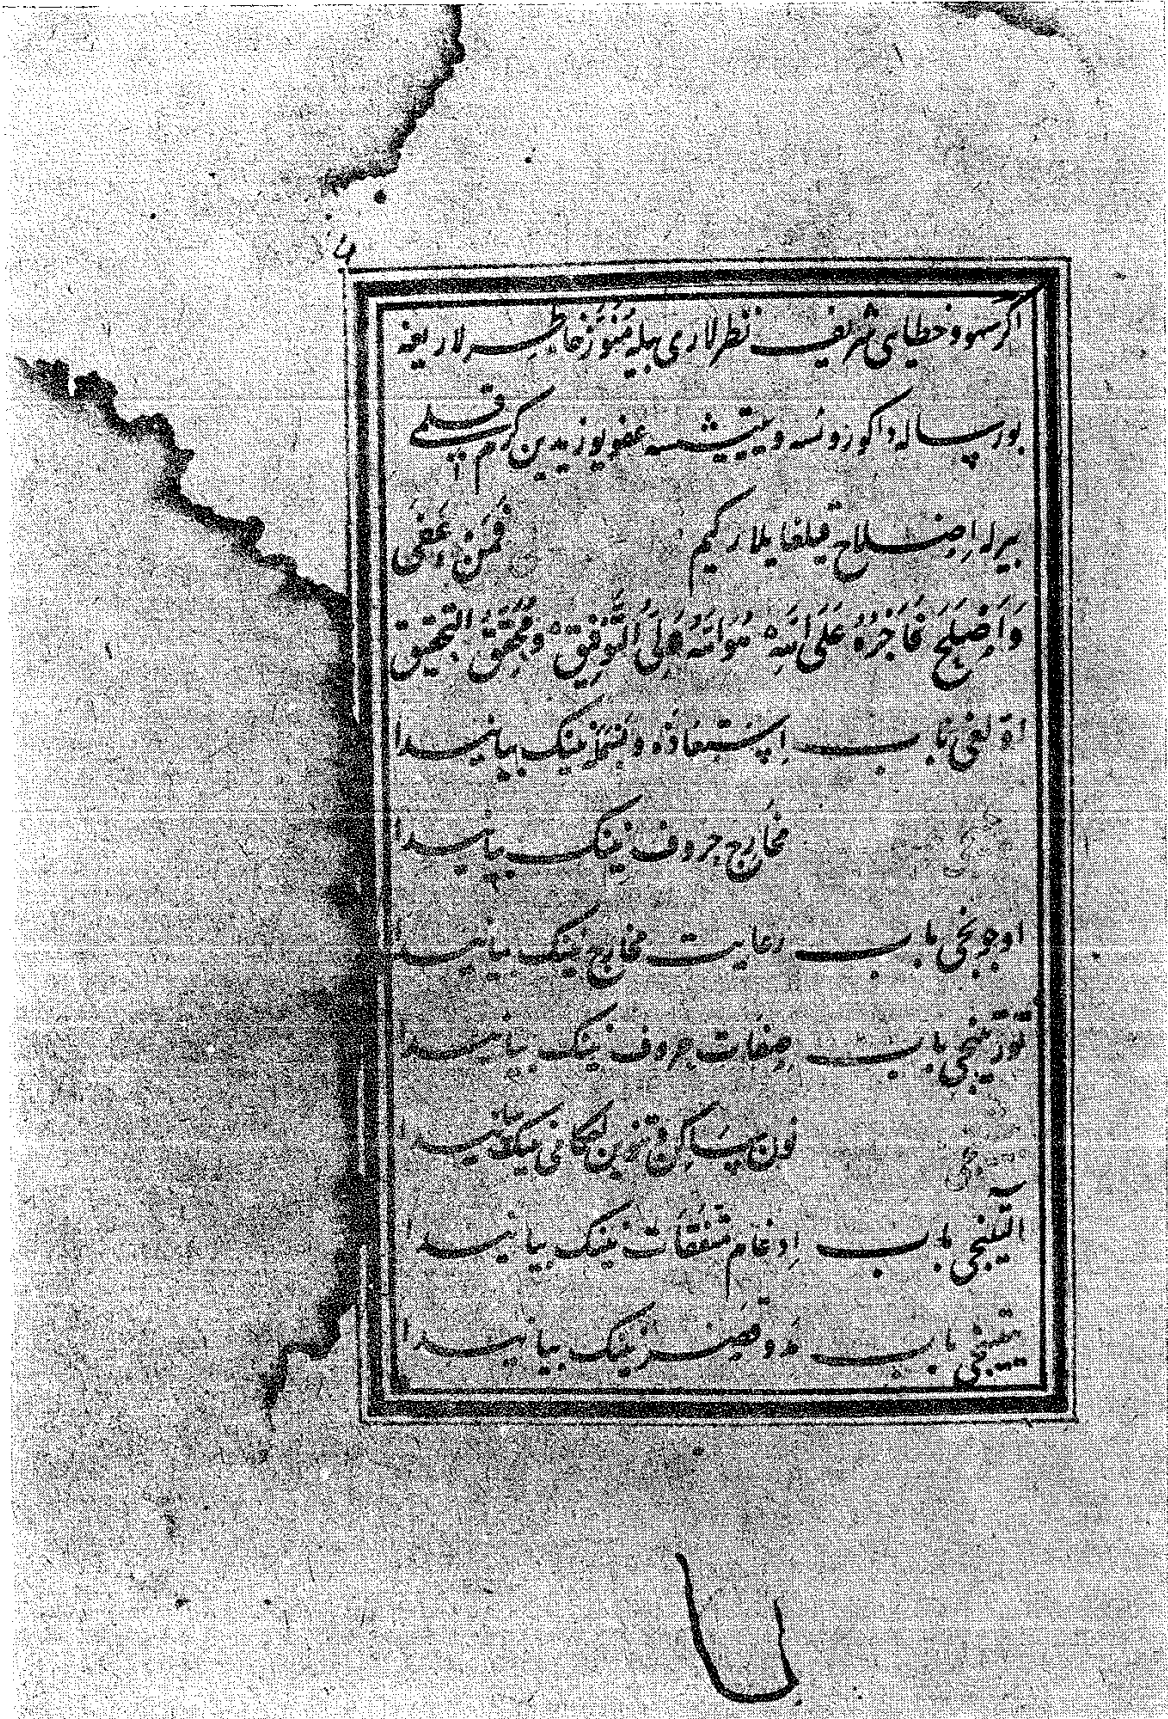 اگر سهو و خطای شریف نظرلاری بیله مُنوّر خاطرلاریغه
بو رساله دا کورونسه و ییتیشسه عفو یوزیدین کرم قلمی
بیرله اِصلاح قیلغایلار کیم فَمَن عَفَی
وَاَصْلَحَ فَاَجْرُهُ عَلَی اللّهِ هُوَ اللّهُ وَلِیُّ التَّوفِیق وَ مُحَقِّقُ التحقیق
اوّلغی باب اِستعاذه و بسمله نینک بیانیدا
مخارج حروف نینک بیانیدا
اوجونجی باب رعایت مخارج نینک بیانیدا
تورتینجی باب صِفات حروف نینک بیانیدا
نون ساکن و تنوین احکامی نینک بیانیدا
آلتینجی باب اِدغام متفقات نینک بیانیدا
یتینجی باب مد و قصر نینک بیانیدا